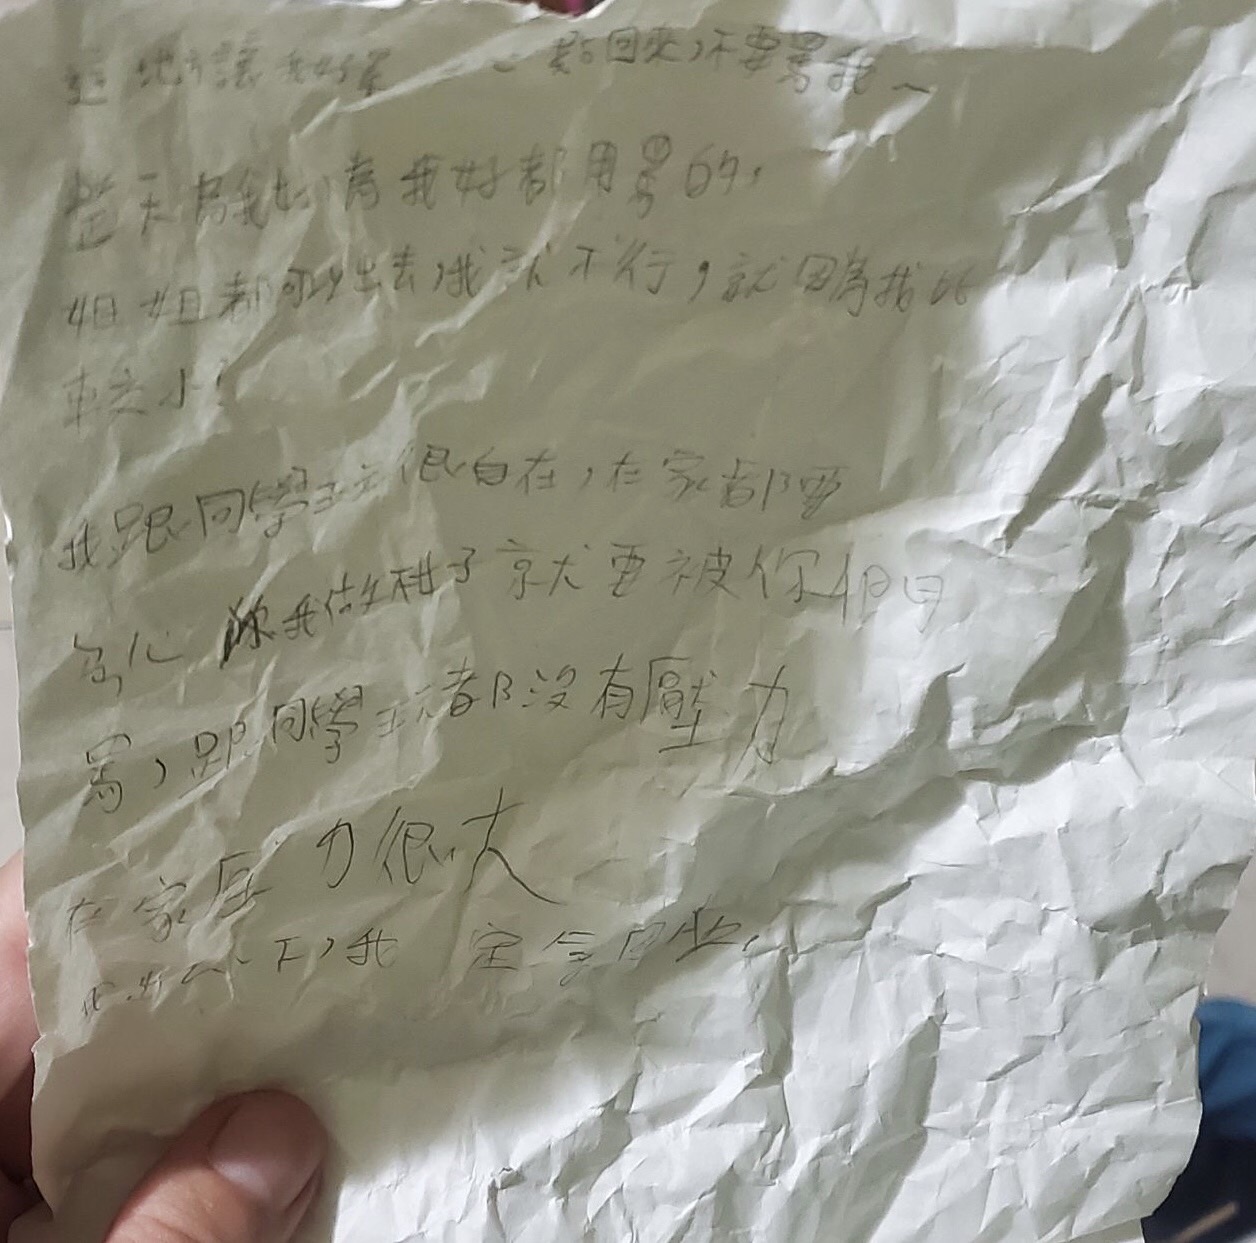 地方讓我好 回來,不要罵我~
整天為我好為我好都用罵的,
姐姐都可以出去,我就不行,就因為我比
較小!
我跟同學玩很自在,在家都要
小心 我做錯了就要被你們
罵,跟同學玩都沒有壓力
在家壓力很大
下,我 定會